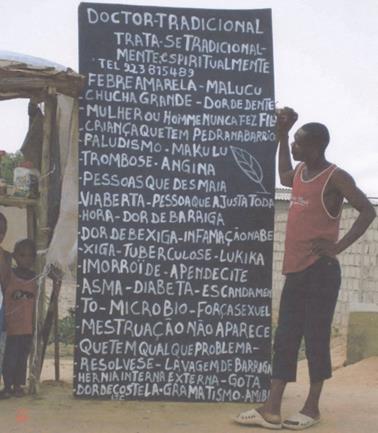 DOCTOR-TRADICIONAL
TRATA-SE TRADICIONAL-
MENTE, ESPIRITUALMENTE
TEL 923 815489
FEBRE AMARELA-MALUCU
CHUCHA GRANDE-DOR DE DENTE
MULHER OU HOMEM NUNCA FEZ FILH
CRIANÇA QUE TEM PEDRA NA BARRIG
PALUDISMO-MAKULU
TROMBOSE-ANGINA
PESSOAS QUE DESMAIA
VIABERTA-PESSOA QUE AJUSTA TODA
HORA-DOR DE BARRIGA
DOR DE BEXIGA-INFAMAÇÃO NA BE
XIGA-TUBERCULOSE-LUKIKA
IMORRÓI DE-APENDECITE
ASMA-DIABETA-ESCANDAMEN
TO-MICROBIO-FORÇA SEXUEL
MESTRUAÇÃO NÃO APARECE
QUE TEM QUALQUE PROBLEMA-
RESOLVESE-LAVAGEM DE BARRIGA
HERNIA INTERNA EXTERNA-GOTA
DOR DE COSTELA-GRAMATISMO-AMIBI